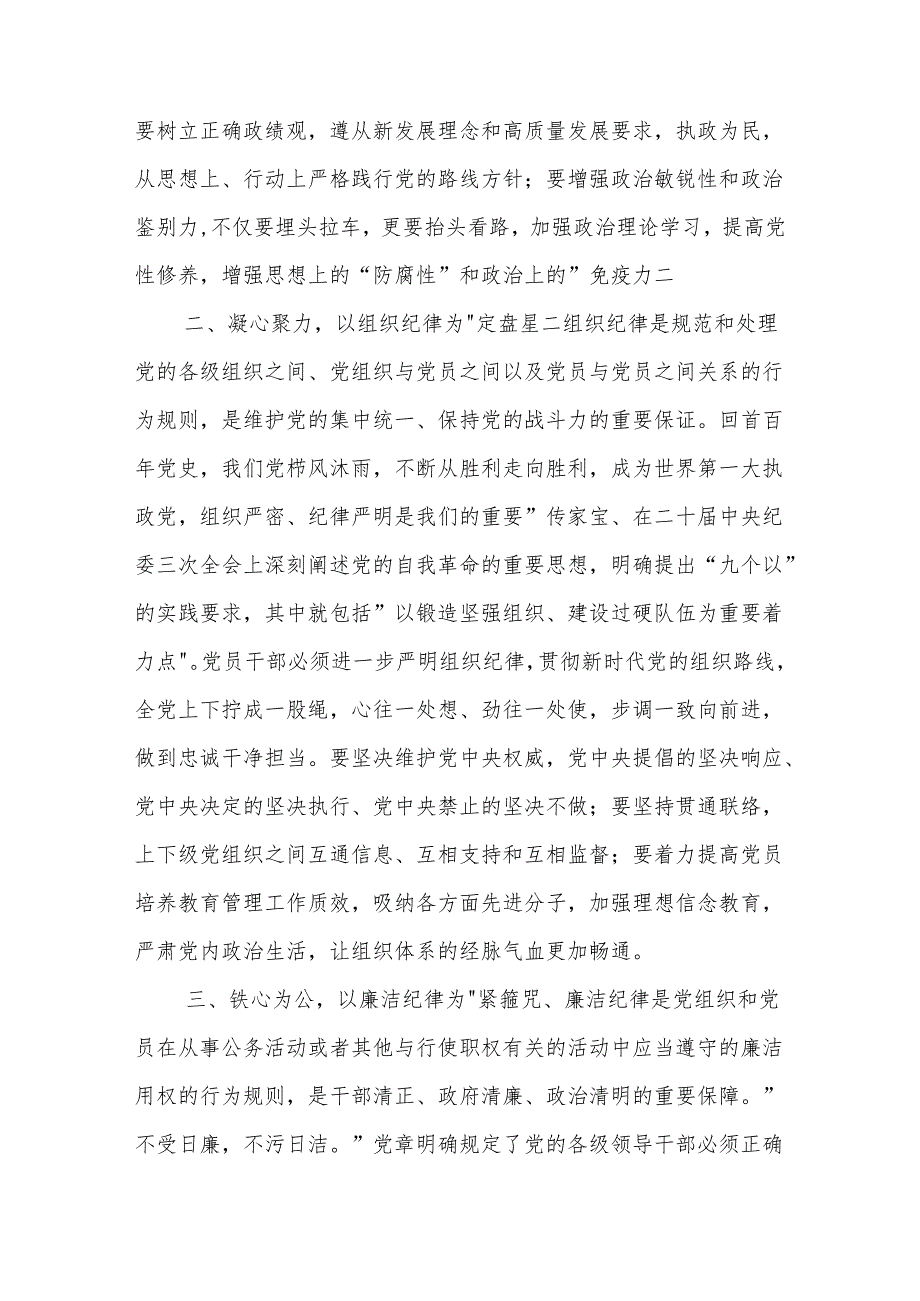 要树立正确政绩观，遵从新发展理念和高质量发展要求，执政为民，
从思想上、行动上严格践行党的路线方针；要增强政治敏锐性和政治
鉴别力,不仅要埋头拉车，更要抬头看路，加强政治理论学习，提高党
性修养，增强思想上的“防腐性”和政治上的”免疫力二
二、凝心聚力，以组织纪律为"定盘星二组织纪律是规范和处理
党的各级组织之间、党组织与党员之间以及党员与党员之间关系的行
为规则，是维护党的集中统一、保持党的战斗力的重要保证。回首百
年党史，我们党栉风沐雨，不断从胜利走向胜利，成为世界第一大执
政党，组织严密、纪律严明是我们的重要”传家宝、在二十届中央纪
委三次全会上深刻阐述党的自我革命的重要思想，明确提出“九个以”
的实践要求，其中就包括”以锻造坚强组织、建设过硬队伍为重要着
力点"。党员干部必须进一步严明组织纪律,贯彻新时代党的组织路线，
全党上下拧成一股绳，心往一处想、劲往一处使，步调一致向前进，
做到忠诚干净担当。要坚决维护党中央权威，党中央提倡的坚决响应、
党中央决定的坚决执行、党中央禁止的坚决不做；要坚持贯通联络，
上下级党组织之间互通信息、互相支持和互相监督；要着力提高党员
培养教育管理工作质效，吸纳各方面先进分子，加强理想信念教育，
严肃党内政治生活，让组织体系的经脉气血更加畅通。
三、铁心为公，以廉洁纪律为"紧箍咒、廉洁纪律是党组织和党
员在从事公务活动或者其他与行使职权有关的活动中应当遵守的廉洁
用权的行为规则，是干部清正、政府清廉、政治清明的重要保障。”
不受日廉，不污日洁。”党章明确规定了党的各级领导干部必须正确